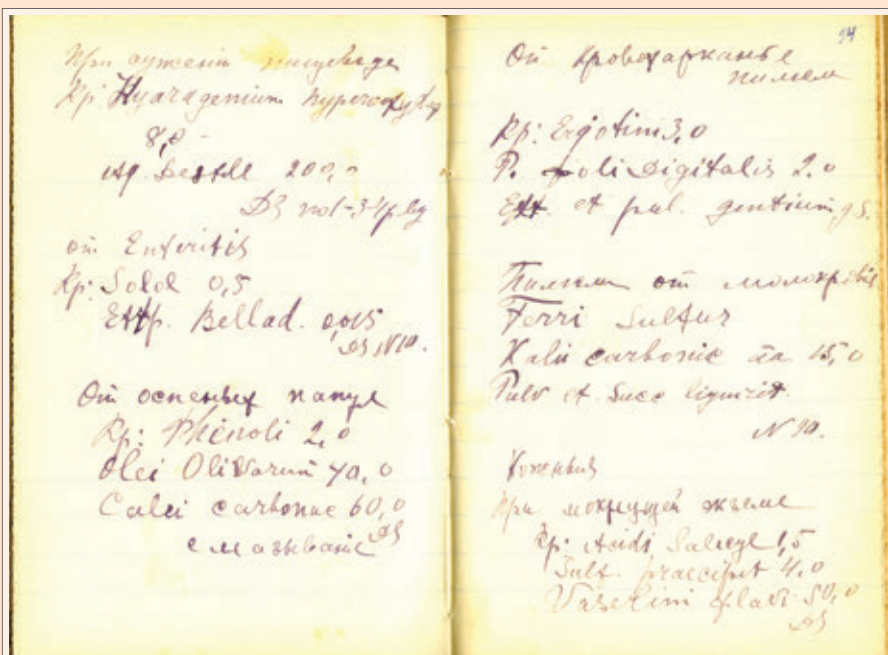 При сужении пищевода
Rp: Hydragenium hyperoxydat
8,0 -
Aq. Destll 200,0
DS
от Enteritis
Rp: Solol 0,5
Extr. Bellad. 0,015
DS N 10.
От оспенных папул
Rp: Phenoli 2,0
Olei Olivarum 40,0
Calci carbonic 60,0
DS
смазывание
94
От Кровохарканье
пилюли
Rp: Ergotini 3,0
P. foli Digitalis 2.0
Ext. et pul. gentium q s.
Пилюли от малокровия
Ferri Sulfur
Kalii carbonic āa 15,0
Pulv et Succ liquirit.
N 90.
Кожных
При мокнущей экземе
Rp: Acidi Salicyl 1,5
Sulf. praecipit 4.0
Vaselini flavi 50,0
DS